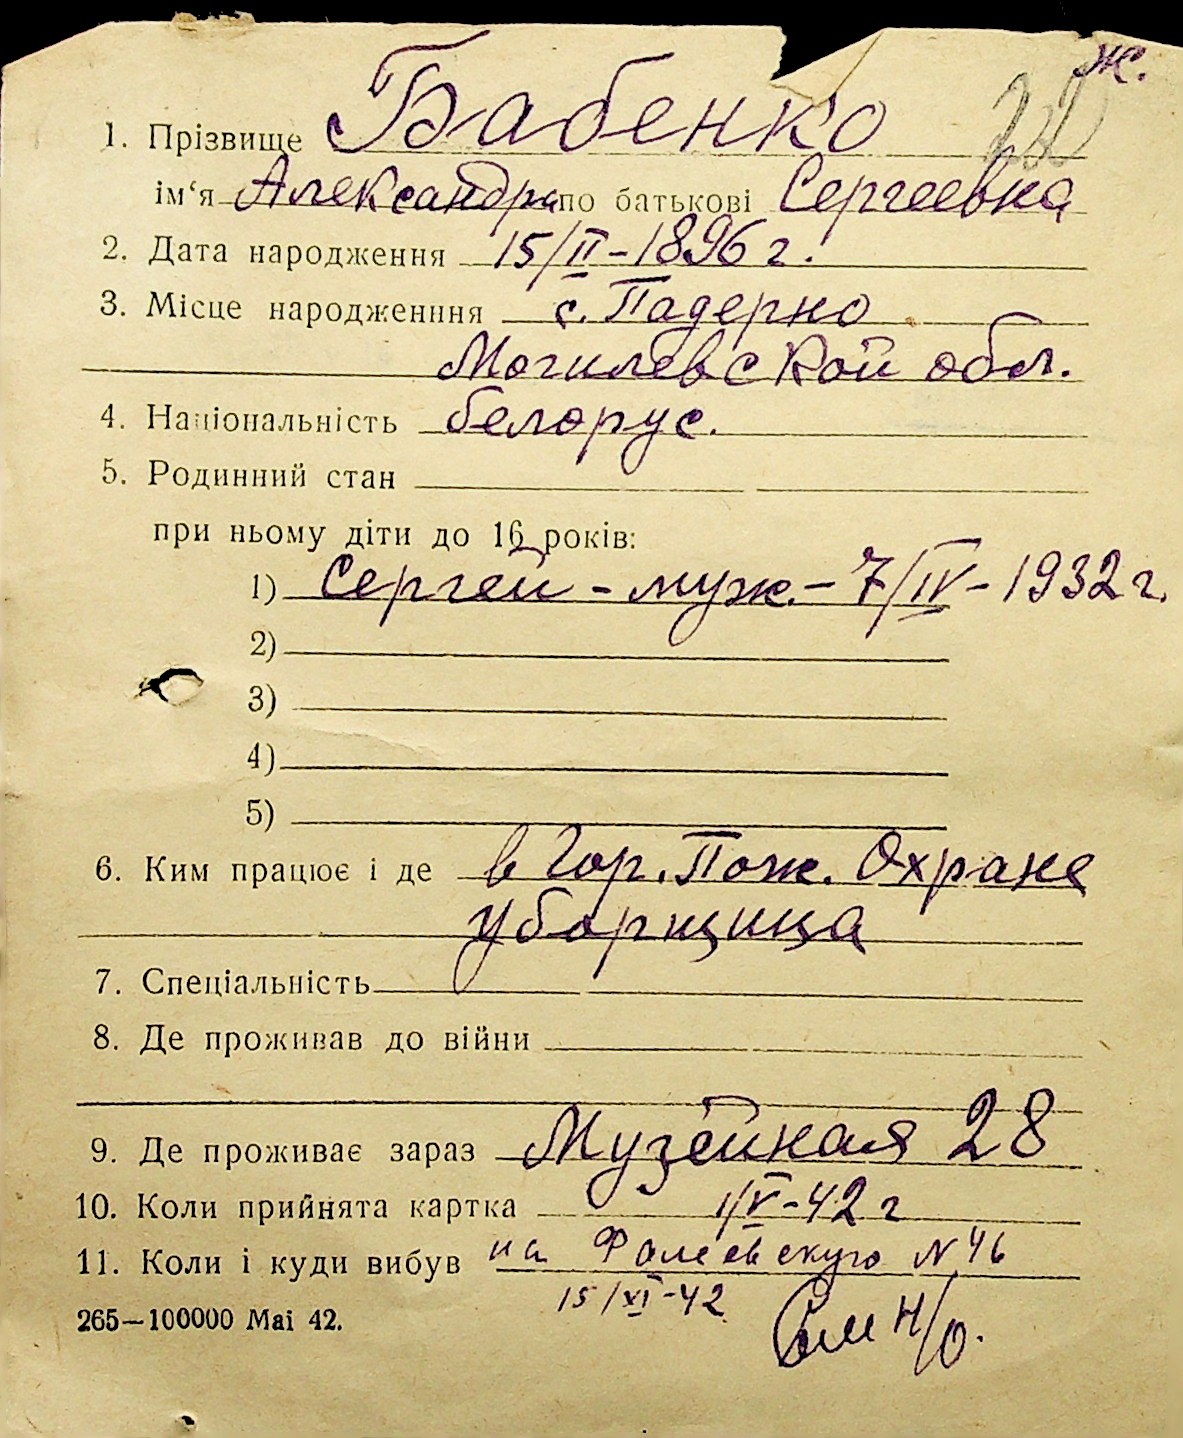 ж.
1. Прізвище Бабенко
ім‘я Александра по батькові Сергеевна
2. Дата народження 15/II-1896 г.
3. Місце народженння с. Падерно
Могилевской обл.
4. Національність белорус.
5. Родинний стан
при ньому діти до 16 років:
1) Сергей - муж. - 7/IV - 1932 г.
2)
3)
4)
5)
6. Ким працює і де в Гор. Пож. Охране
уборщица
7. Спеціальність
8. Де проживав до війни
9. Де проживає зараз Музейная 28
10. Коли прийнята картка 1/V-42 г
11. Коли і куди вибув на Фалеевскую N 46
15/XI-42
265—100000 Mai 42.
См н/о.